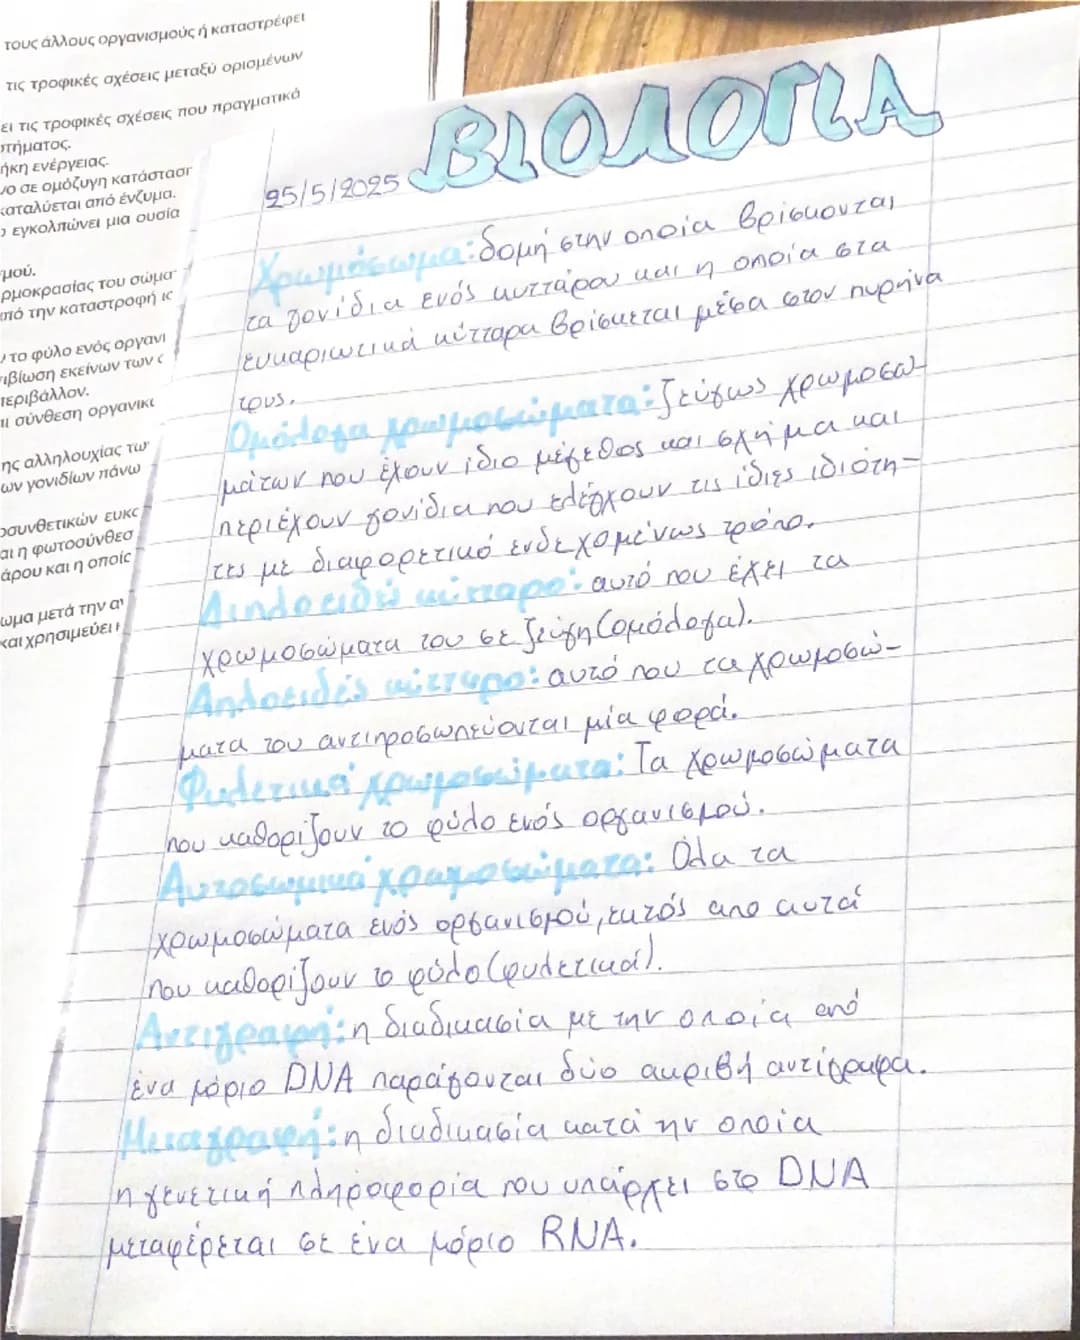 τους άλλους οργανισμούς ή καταστρέφει
τις τροφικές σχέσεις μεταξύ ορισμένων
ει τις τροφικές σχέσεις που πραγματικά
στήματος.
ήκη ενέργειας.
νο σε ομόζυγη κατάστασ
καταλύεται από ένζυμα.
ο εγκολπώνει μια ουσία
μού.
ρμοκρασίας του σώμα
από την καταστροφή ισ
το φύλο ενός οργανι
ιβίωση εκείνων των ο
περιβάλλον.
ι σύνθεση οργανικ
ης αλληλουχίας τω
ων γονιδίων πάνω
οσυνθετικών ευκ
αι η φωτοσύνθεσ
άρου και η οποί
ωμα μετά την α
και χρησιμεύει
ΒΙΟΛΟΓΙΑ
25/5/2025
Χρωμόσωμα: δομή στην οποία βρίσκονται
τα γονίδια ενός κυττάρου και η οποία στα
ευκαριωτικά κύτταρα βρίσκεται μέσα στον πυρήνα
τους.
Ομόλογα χρωμοσώματα: Ζεύγως χρωμοσω-
μάτων που έχουν ίδιο μέγεθος και σχήμα και
περιέχουν γονίδια που ελέγχουν τις ίδιες ιδιότη-
τες με διαφορετικό ενδεχομένως τρόπο.
Διπλοειδές κύτταρο: αυτό που έχει τα
χρωμοσώματα του σε ζεύγη (ομόλογα).
Απλοειδές κύτταρο: αυτό που τα χρωμοσώ-
ματα του αντιπροσωπεύονται μία φορά.
Φυλετικά χρωμοσώματα: Τα χρωμοσώματα
που καθορίζουν το φύλο ενός οργανισμού.
Αυτοσωμικά χρωμοσώματα: Όλα τα
χρωμοσώματα ενός οργανισμού, εκτός απο αυτά
που καθορίζουν το φύλο (φυλετικά).
Αντιγραφή: η διαδικασία με την οποία από
ένα μόριο DNA παράγονται δύο ακριβή αντίγραφα.
Μεταγραφή: η διαδικασία κατά ην οποία
η γενετική πληροφορία που υπάρχει στο DNA
μεταφέρεται σε ένα μόριο RNA.